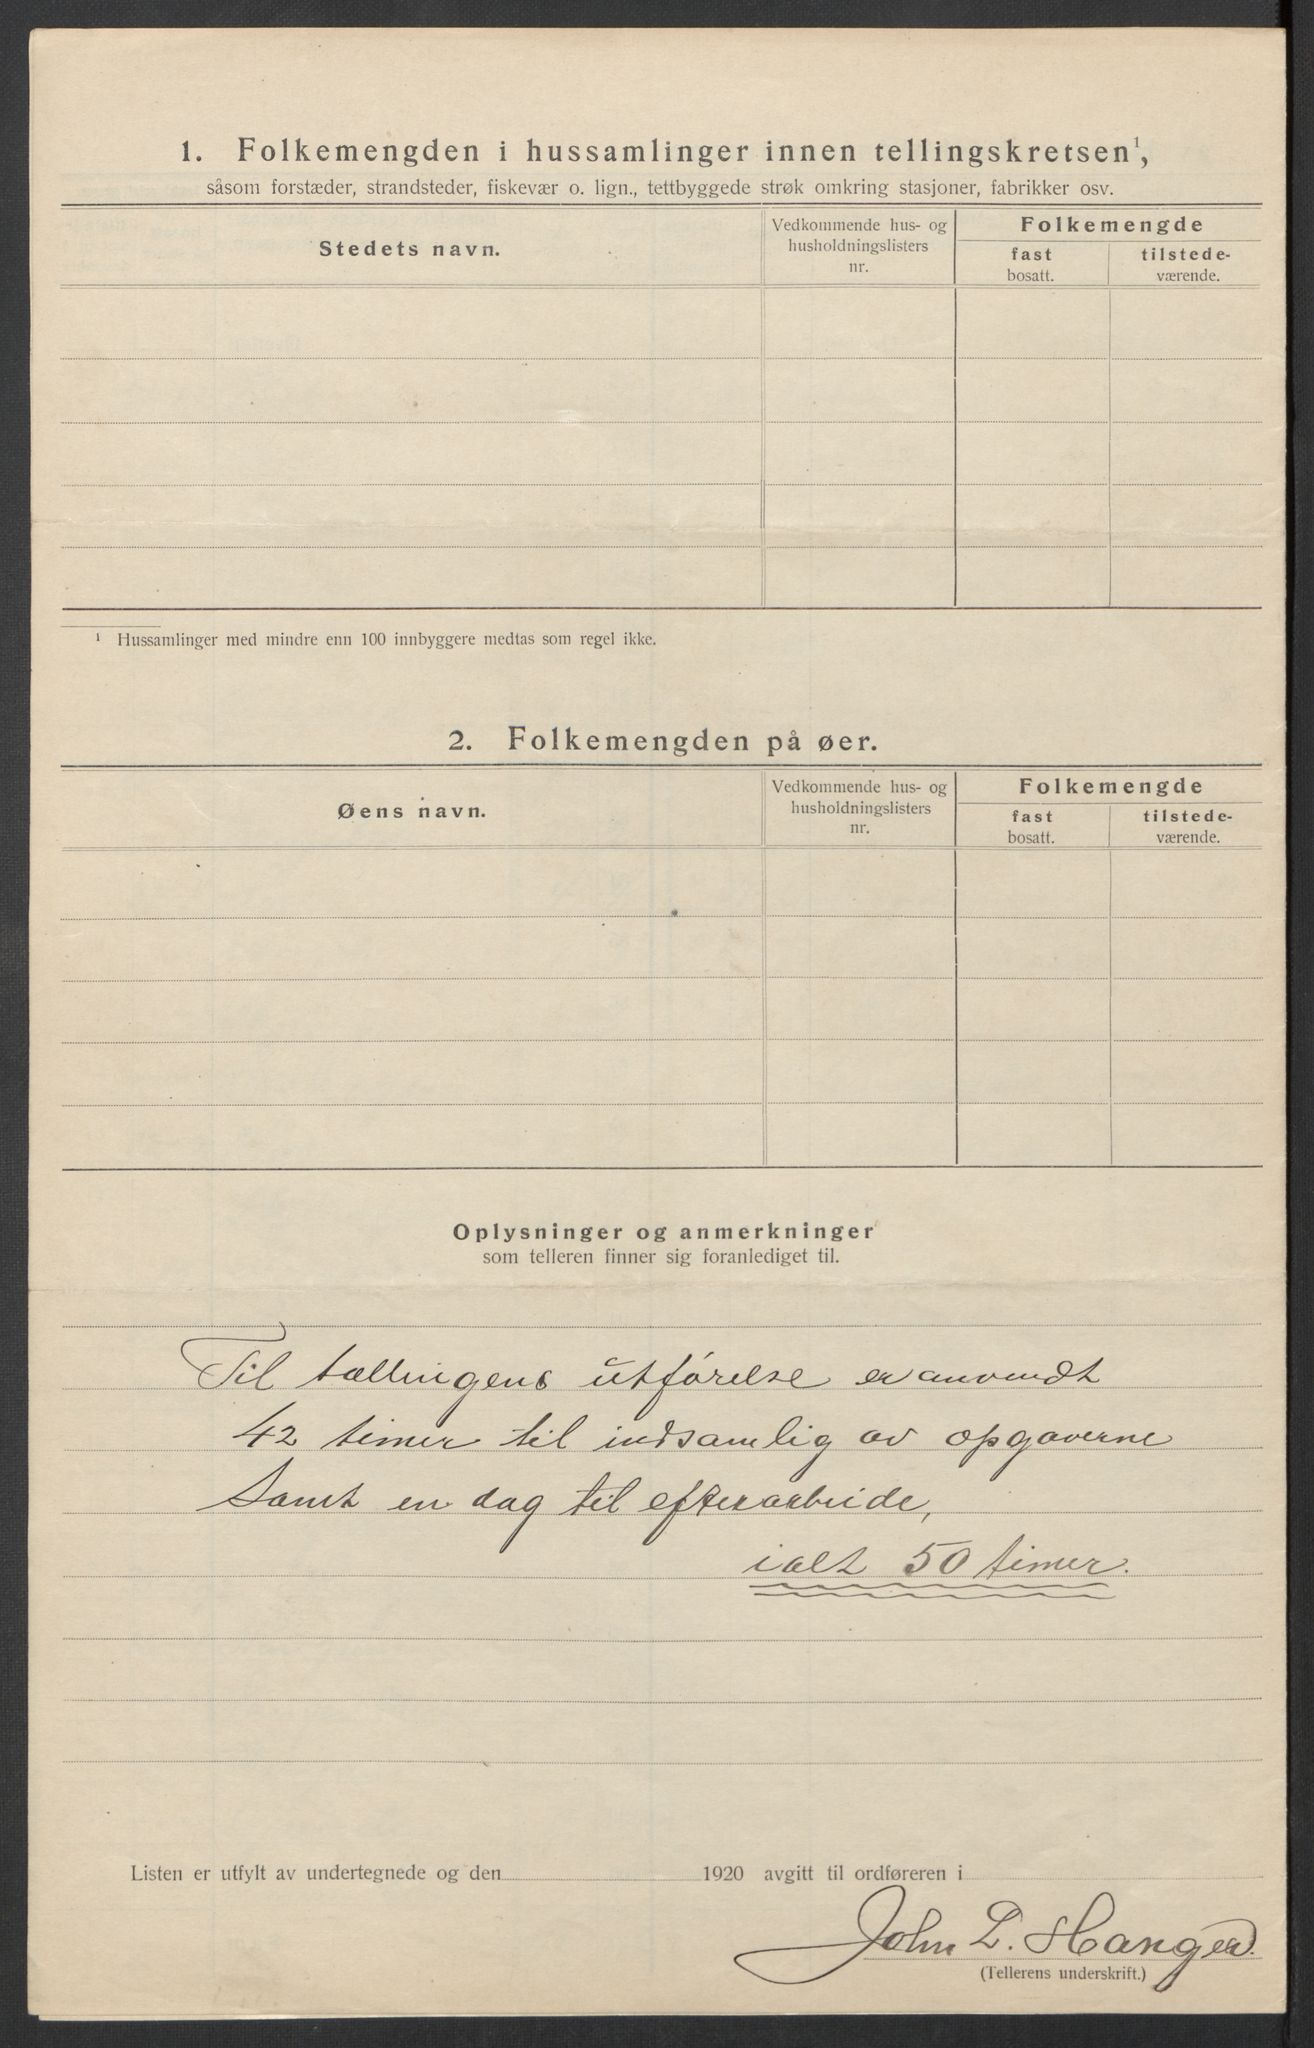 1. Folkemengden i hussamlinger innen tellingskretsen¹,
såsom forstæder, strandsteder, fiskevær o. lign., tettbyggede strøk omkring stasjoner, fabrikker osv.
Stedets navn.
Vedkommende hus- og
husholdningslisters
nr.
Folkemengde
fast
bosatt.
tilstede-
værende.
¹ Hussamlinger med mindre enn 100 innbyggere medtas som regel ikke.
2. Folkemengden på øer.
Øens navn.
Vedkommende hus- og
husholdningslisters
nr.
Folkemengde
fast
bosatt.
tilstede-
værende.
Oplysninger og anmerkninger
som telleren finner sig foranlediget til.
Til tællingens utførelse er anvendt
42 timer til indsamlig av opgaverne
Samt en dag til efterarbeide,
ialt 50 timer.
Listen er utfylt av undertegnede og den 1920 avgitt til ordføreren i
John L. Hanger
(Tellerens underskrift.)